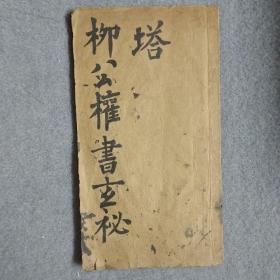 柳公權書玄祕
塔